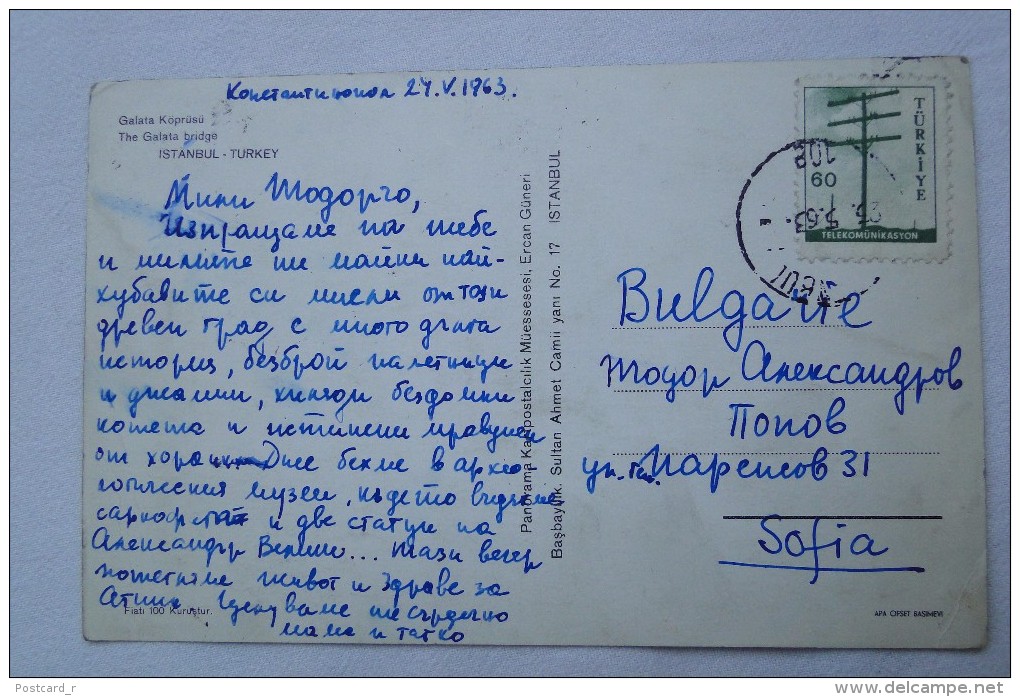 Константинопол 24.V.1963.
Galata Köprüsü
The Galata bridge
ISTANBUL - TURKEY
Мили Тодорчо,
Изпращаме на тебе
и милите ни майки най-
хубавите си мисли от този
древен град с много дълга
история, безброй паметници
и джамии, хиляди бездомни
котета и истински мравуняк
от хора Днес бехме в архео
логическия музей, където видяхме
саркофага и две статуи на
Александър Велики... Тази вечер
потегляме живот и здраве за
Атина. Целуваме те сърдечно
мама и татко
Fiatı 100 Kuruştur.
Panorama Kartpostalcılık Müessesesi, Ercan Güneri
Başbayilik. Sultan Ahmet Camii yanı No. 17 ISTANBUL
TÜRKİYE
60
TELEKOMÜNİKASYON
108
5.63
Bulgarie
Тодор Александров
Попов
ул. Паренсов 31
Sofia
APA OFSET BASIMEVİ
Postcard_r
www.delcampe.net